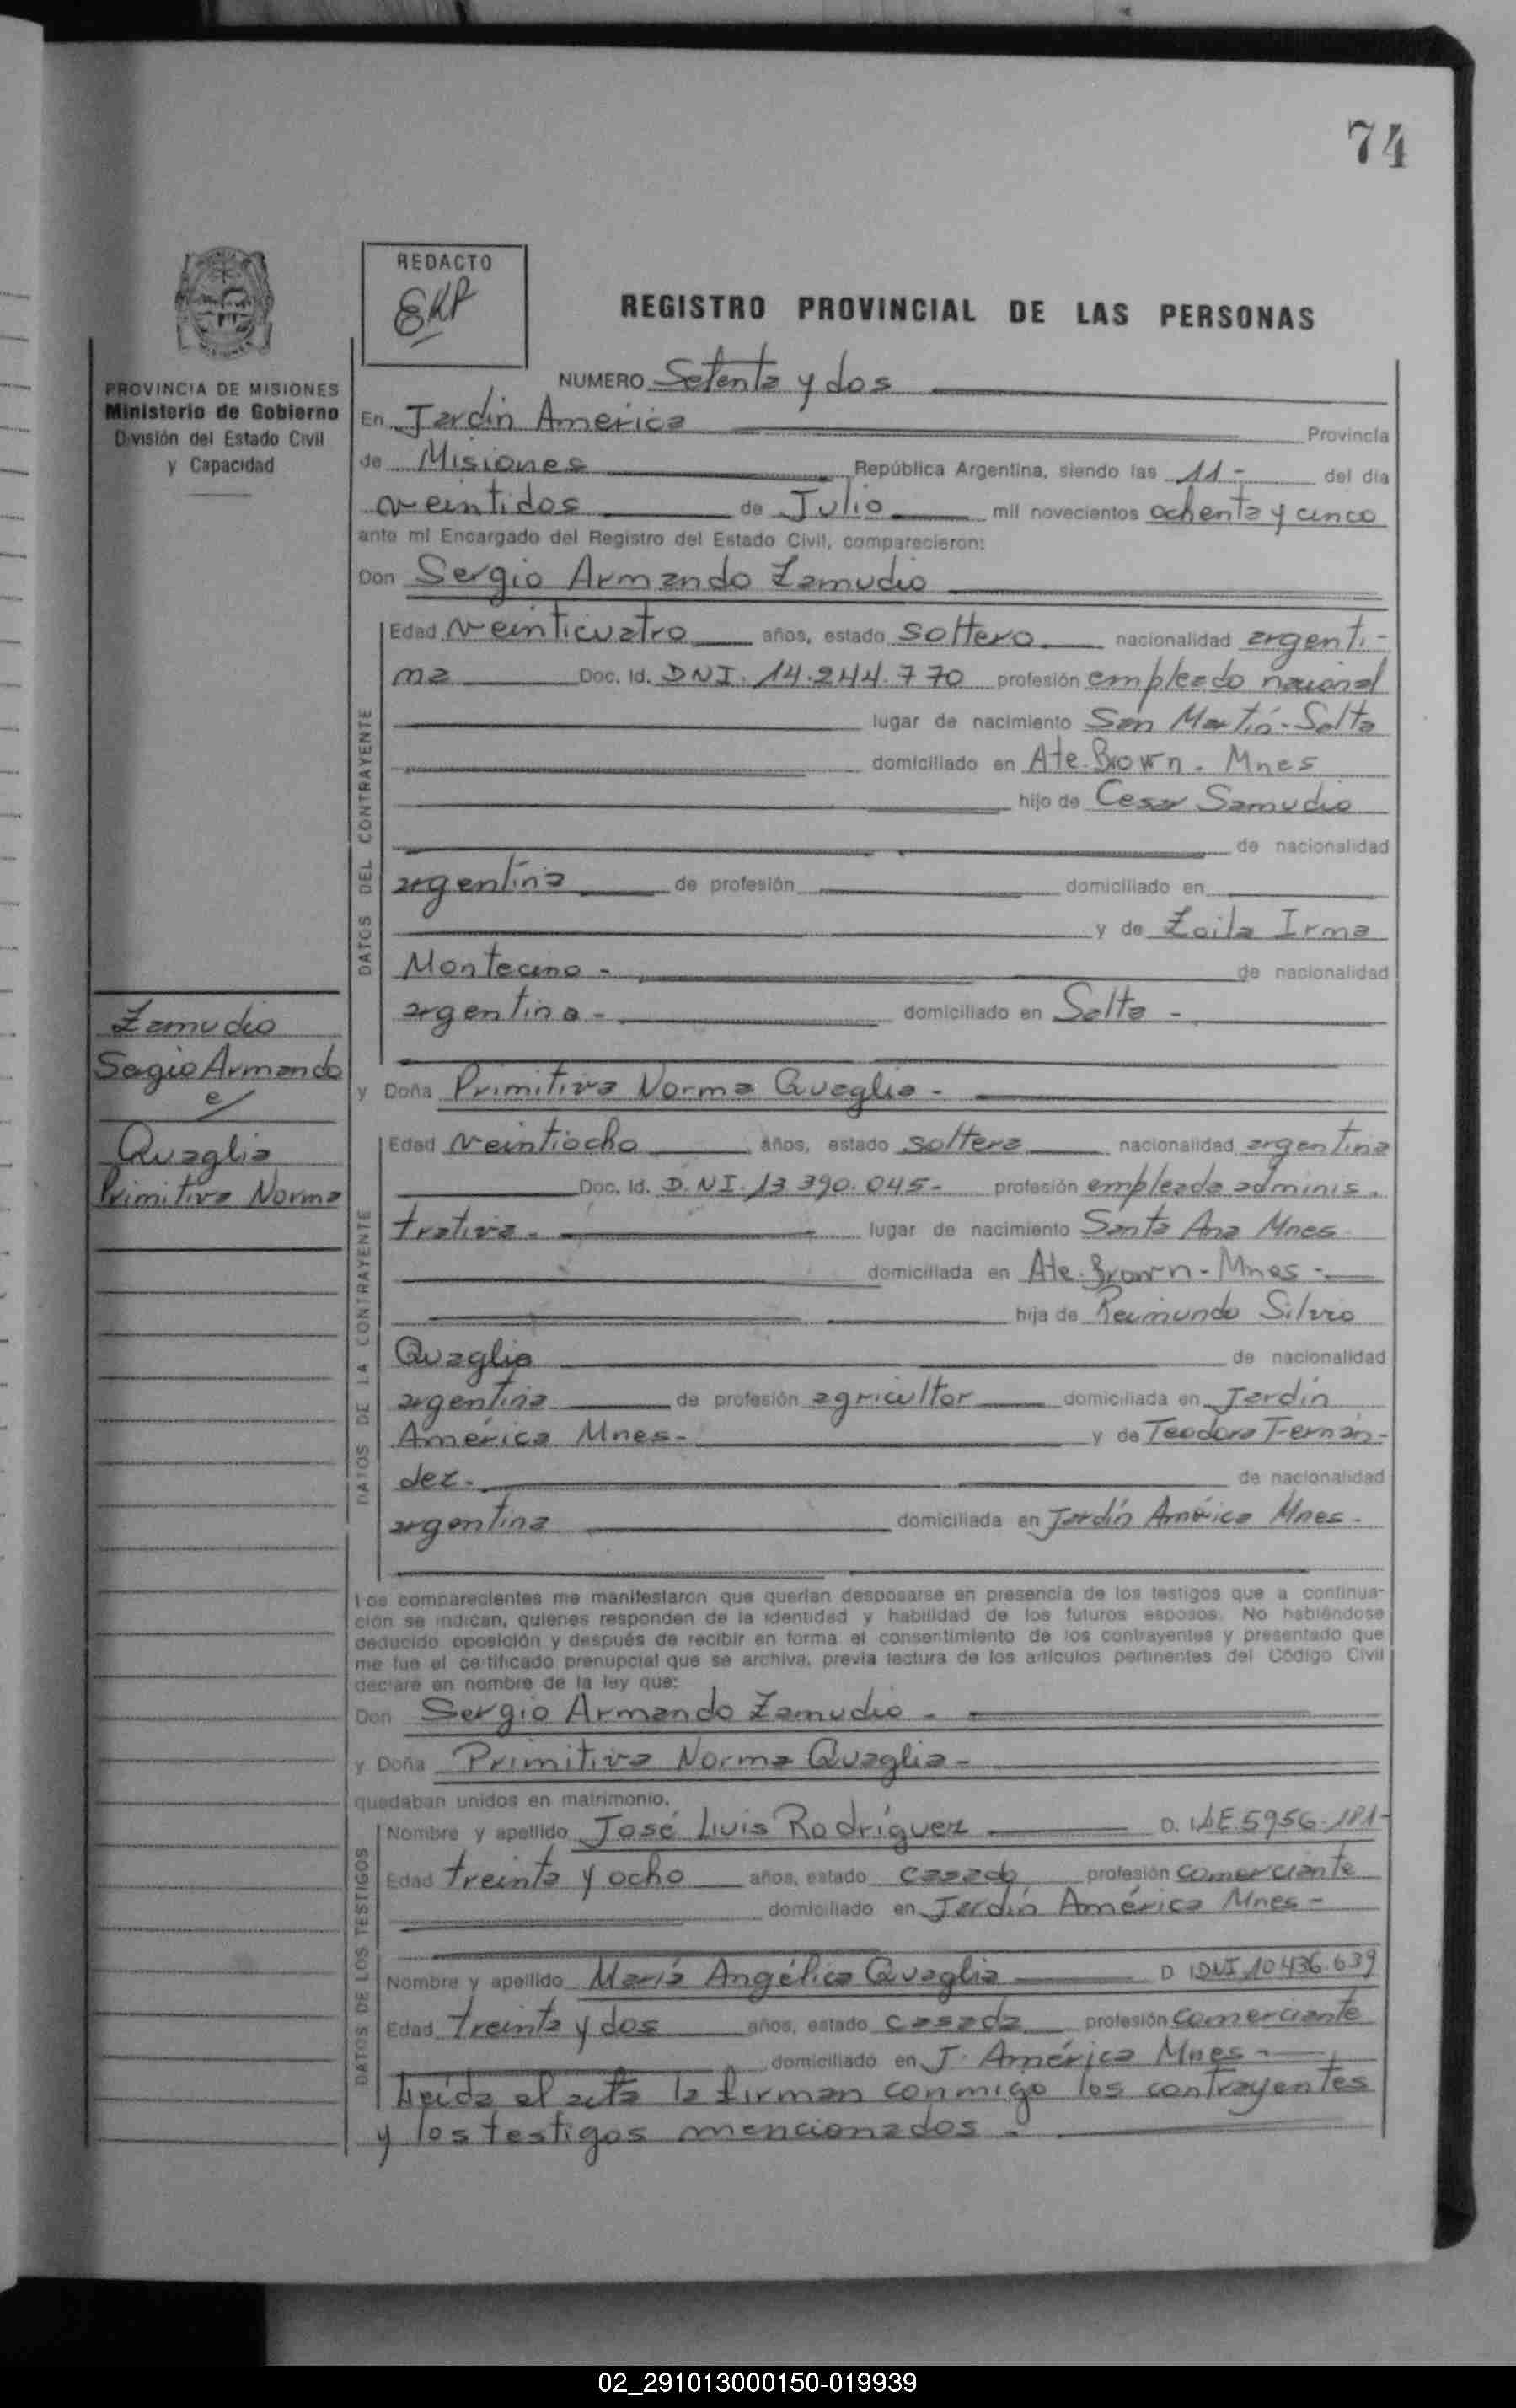 74
REDACTO
REGISTRO PROVINCIAL DE LAS PERSONAS
PROVINCIA DE MISIONES
Ministerio de Gobierno
División del Estado Civil
y Capacidad
NUMERO Setenta y dos
En Jardín América Provincia
de Misiones República Argentina, siendo las 11- del día
veintidos de Julio mil novecientos ochenta y cinco
ante mi Encargado del Registro del Estado Civil, comparecieron:
Don Sergio Armando Zamudio
DATOS DEL CONTRAYENTE
Edad veinticuatro años, estado soltero nacionalidad argenti-
na Doc. Id. DNI. 14.244.770 profesión empleado nacional
lugar de nacimiento San Martín-Salta
domiciliado en Ate. Brown. Mnes
hijo de Cesar Samudio
de nacionalidad
argentina de profesión domiciliado en
y de Zoila Irma
Montecino - de nacionalidad
argentina - domiciliado en Salta -
Zamudio
Sergio Armando
c/
Quaglia
Primitiva Norma
y Doña Primitiva Norma Quaglia -
DATOS DE LA CONTRAYENTE
Edad veintiocho años, estado soltera nacionalidad argentina
Doc. Id. D.NI. 13 390.045- profesión empleada adminis-
trativa - lugar de nacimiento Santa Ana Mnes
domiciliada en Ate. Brown - Mnes -
hija de Reimundo Silvio
Quaglia de nacionalidad
argentina de profesión agricultor domiciliada en Jardín
América Mnes- y de Teodora Fernán-
dez - de nacionalidad
argentina domiciliada en Jardín América Mnes -
Los comparecientes me manifestaron que querían desposarse en presencia de los testigos que a continua-
ción se indican, quienes responden de la identidad y habilidad de los futuros esposos. No habiéndose
deducido oposición y después de recibir en forma el consentimiento de los contrayentes y presentado que
me fue el certificado prenupcial que se archiva, previa lectura de los artículos pertinentes del Código Civil
declaré en nombre de la ley que:
Don Sergio Armando Zamudio -
y Doña Primitiva Norma Quaglia -
quedaban unidos en matrimonio.
DATOS DE LOS TESTIGOS
Nombre y apellido José Luis Rodríguez D. I. LE. 5956.181-
Edad treinta y ocho años, estado casado profesión comerciante
domiciliado en Jardín América Mnes -
Nombre y apellido María Angélica Quaglia D I DNI 10436.639
Edad treinta y dos años, estado casada profesión comerciante
domiciliado en J. América Mnes -
Leída el acta la firman conmigo los contrayentes
y los testigos mencionados -
02_291013000150-019939